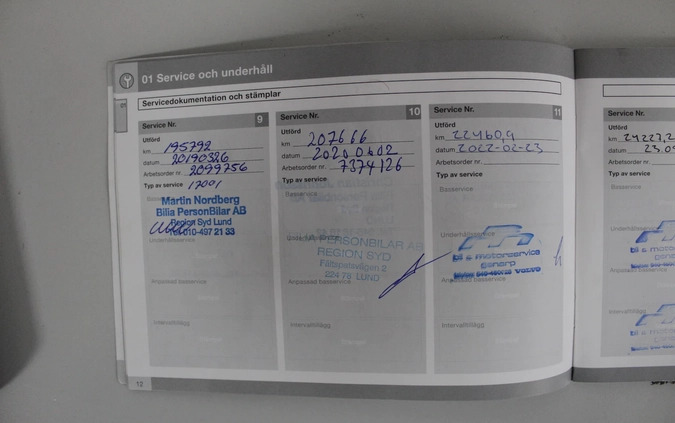 01 Service och underhåll
01
Servicedokumentation och stämplar
Service Nr. 9
Utförd
km 195792
datum 20190326
Arbetsorder nr. 2099756
Typ av service 17001
Basservice
Martin Nordberg
Bilia PersonBilar AB
Region Syd Lund
Tel 010-497 21 33
Underhållsservice
Anpassad basservice
Intervalltillägg
Service Nr. 10
Utförd
km 207666
datum 20200602
Arbetsorder nr. 7374126
Typ av service
Basservice
Underhållsservice
PERSONBILAR AB
REGION SYD
Fältspatsvägen 2
224 78 LUND
Anpassad basservice
Intervalltillägg
Service Nr. 11
Utförd
km 22460,4
datum 2022-02-23
Arbetsorder nr.
Typ av service
Basservice
Underhållsservice
bil & motorservice
genarp
VOLVO
Anpassad basservice
Intervalltillägg
Service Nr.
Utförd
km 24227,2
datum 23.0
Arbetsorder nr.
Typ av service
Basservice
Underhållsservice
bil & mo
Anpassad basservice
Intervalltillägg
12